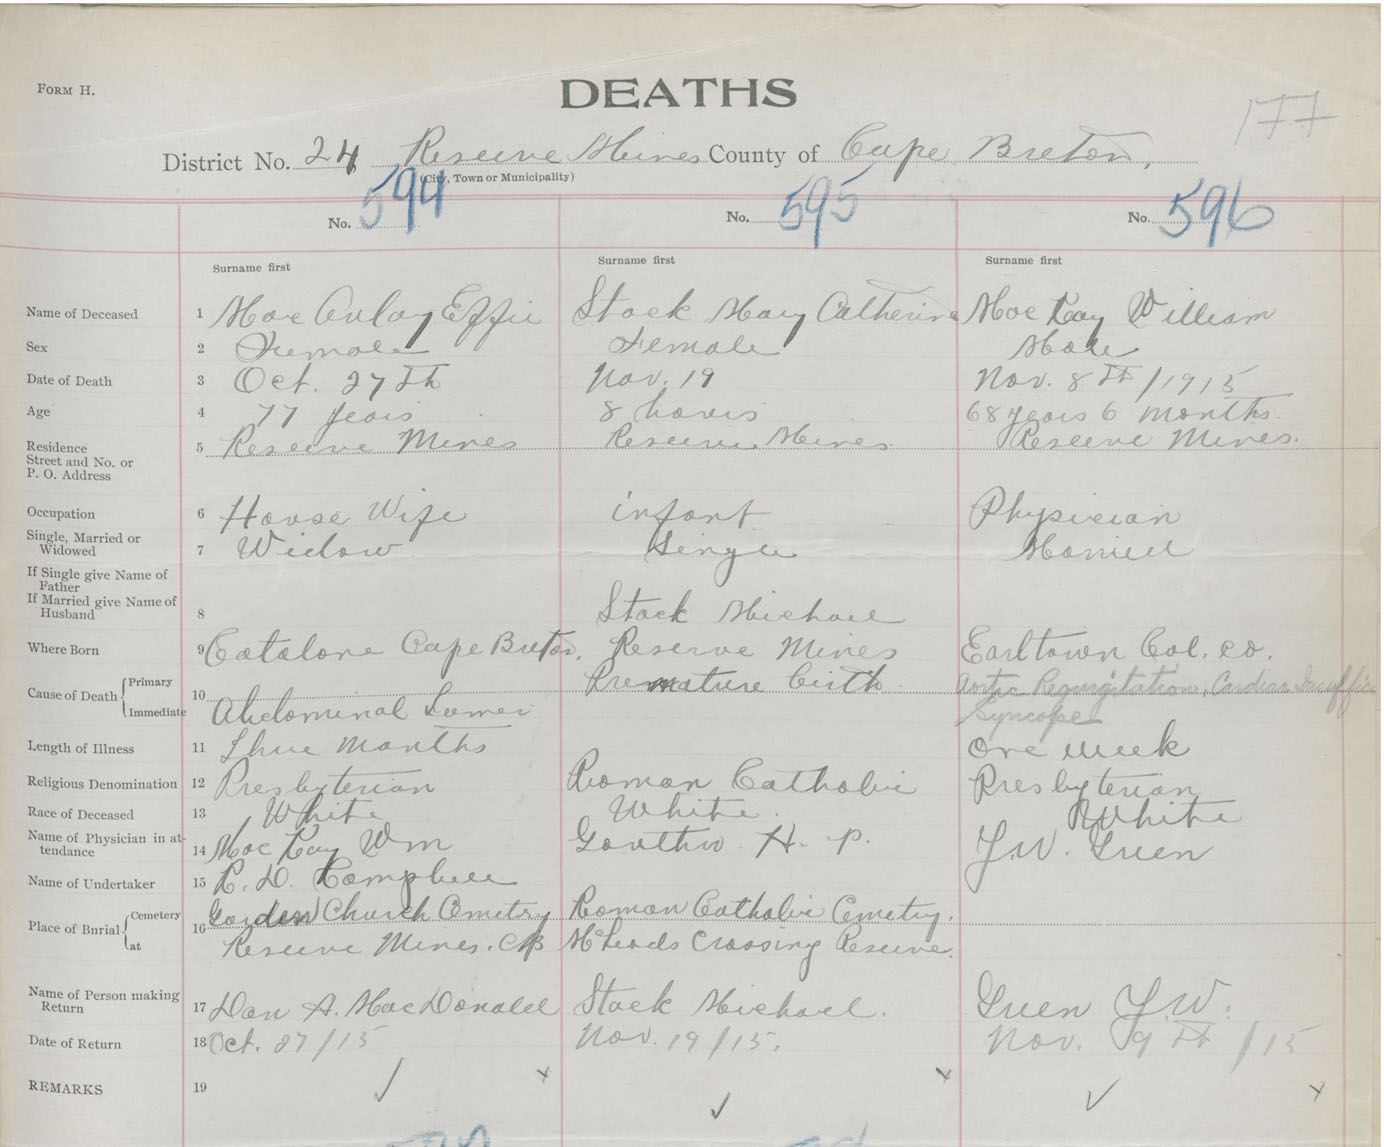 FORM H.
DEATHS
177
District No. 24 Reserve Mines County of Cape Breton,
(City, Town or Municipality)
No. 594 No. 595 No. 596
Surname first Surname first Surname first
Name of Deceased 1 Mac Aulay Effie Stack Mary Catherine Mac Kay William
Sex 2 Female Female Male
Date of Death 3 Oct. 27th Nov. 19 Nov. 8th/1915
Age 4 77 years 8 hours 68 years 6 months.
Residence Street and No. or P. O. Address 5 Reserve Mines Reserve Mines Reserve Mines.
Occupation 6 House Wife infant Physician
Single, Married or Widowed 7 Widow Single Married
If Single give Name of Father
If Married give Name of Husband 8 Stack Michael
Where Born 9 Catalone Cape Breton. Reserve Mines Earltown Col. co.
Cause of Death Primary 10 Premature birth Aortic Regurgitation, Cardiac
Immediate Abdominal Syncope
Length of Illness 11 Three months one week
Religious Denomination 12 Presbyterian Roman Catholic Presbyterian
Race of Deceased 13 White White. White
Name of Physician in attendance 14 Mac Kay Wm H. P.
Name of Undertaker 15 D.
Place of Burial Cemetery 16 Church Cemetry Roman Catholic Cemetry.
at Reserve Mines. CB Crossing Reserve.
Name of Person making Return 17 Dan A. MacDonald Stack Michael.
Date of Return 18 Oct. 27/15 Nov. 19/15. Nov. 9th/15
REMARKS 19 ✓ x ✓ x ✓ x